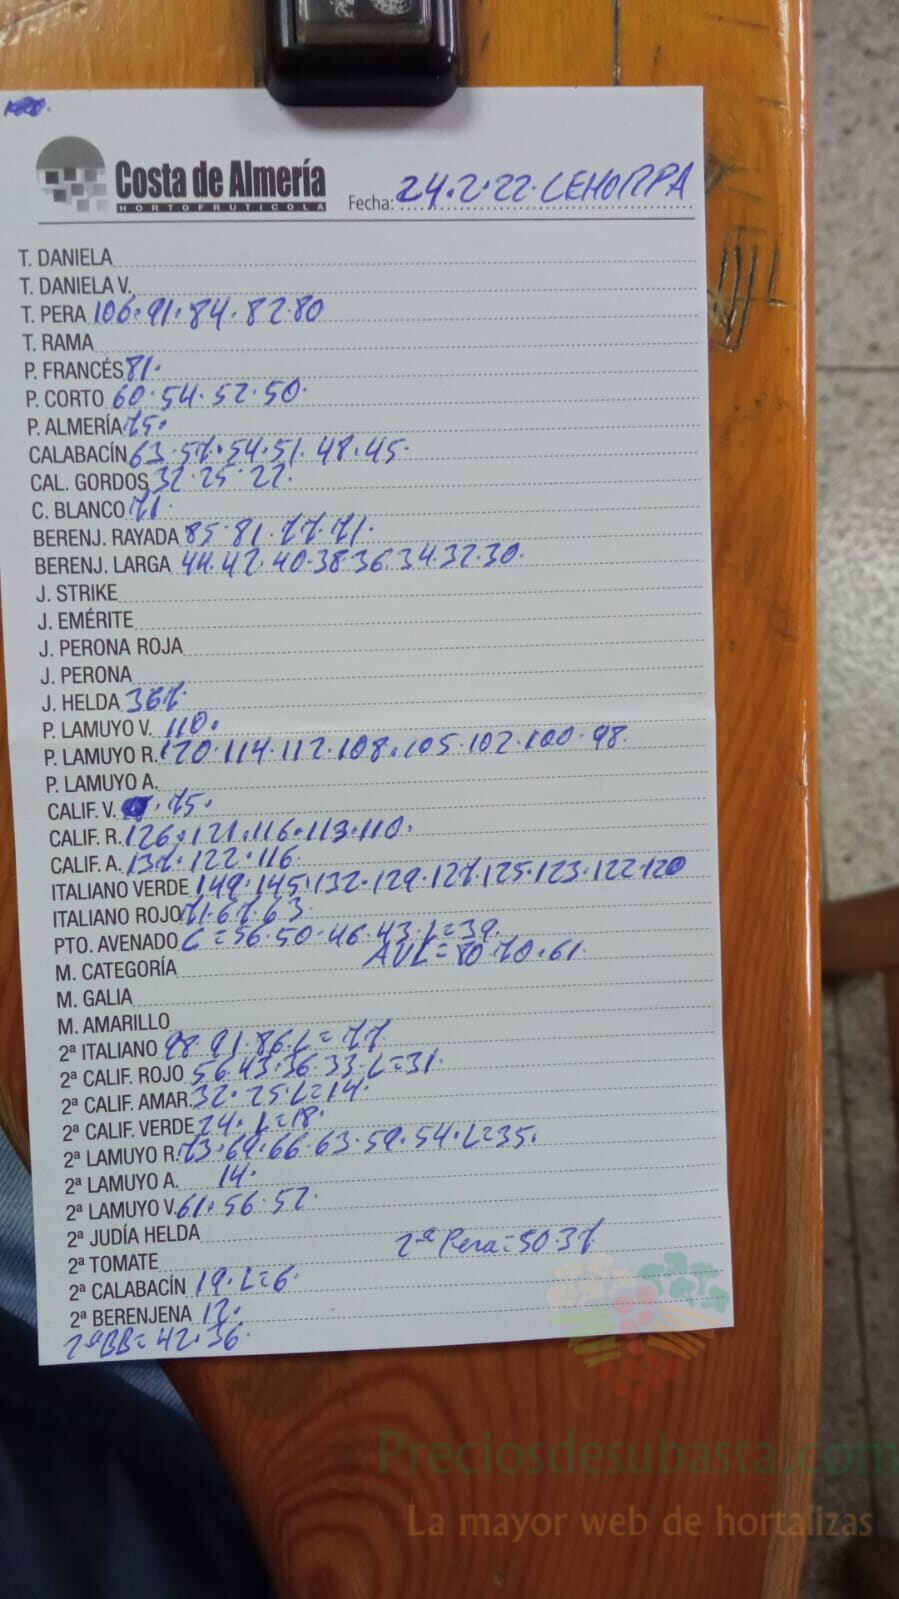 Costa de Almería
HORTOFRUTICOLA
Fecha: 24.2.22. CEHORPA
T. DANIELA
T. DANIELA V.
T. PERA 106.91.84.82.80
T. RAMA
P. FRANCÉS 81.
P. CORTO 60.54.52.50.
P. ALMERÍA 75.
CALABACÍN 63.57.54.51.48.45.
CAL. GORDOS 32.25.22.
C. BLANCO 71.
BERENJ. RAYADA 85.81.77.71.
BERENJ. LARGA 44.42.40.38.36.34.32.30.
J. STRIKE
J. EMÉRITE
J. PERONA ROJA
J. PERONA
J. HELDA 367.
P. LAMUYO V. 110.
P. LAMUYO R. 120.114.112.108.105.102.100.98.
P. LAMUYO A.
CALIF. V. 75.
CALIF. R. 126.121.116.113.110.
CALIF. A. 137.122.116.
ITALIANO VERDE 149.145.132.129.127.125.123.122.120
ITALIANO ROJO 71.67.63.
PTO. AVENADO C=56.50.46.43.L=39.
AVL=80.70.61.
M. CATEGORÍA
M. GALIA
M. AMARILLO
2ª ITALIANO 98.91.86.L=77.
2ª CALIF. ROJO 56.43.36.33.L=31.
2ª CALIF. AMAR. 32.25.L=14.
2ª CALIF. VERDE 24.L=18.
2ª LAMUYO R. 73.69.66.63.59.54.L=35.
2ª LAMUYO A. 14.
2ª LAMUYO V. 61.56.52.
2ª JUDÍA HELDA
2ª Pera=50.37
2ª TOMATE
2ª CALABACÍN 19.L=6.
2ª BERENJENA 12.
2ªBB=42.36.
Preciosdesubasta.com
La mayor web de hortalizas